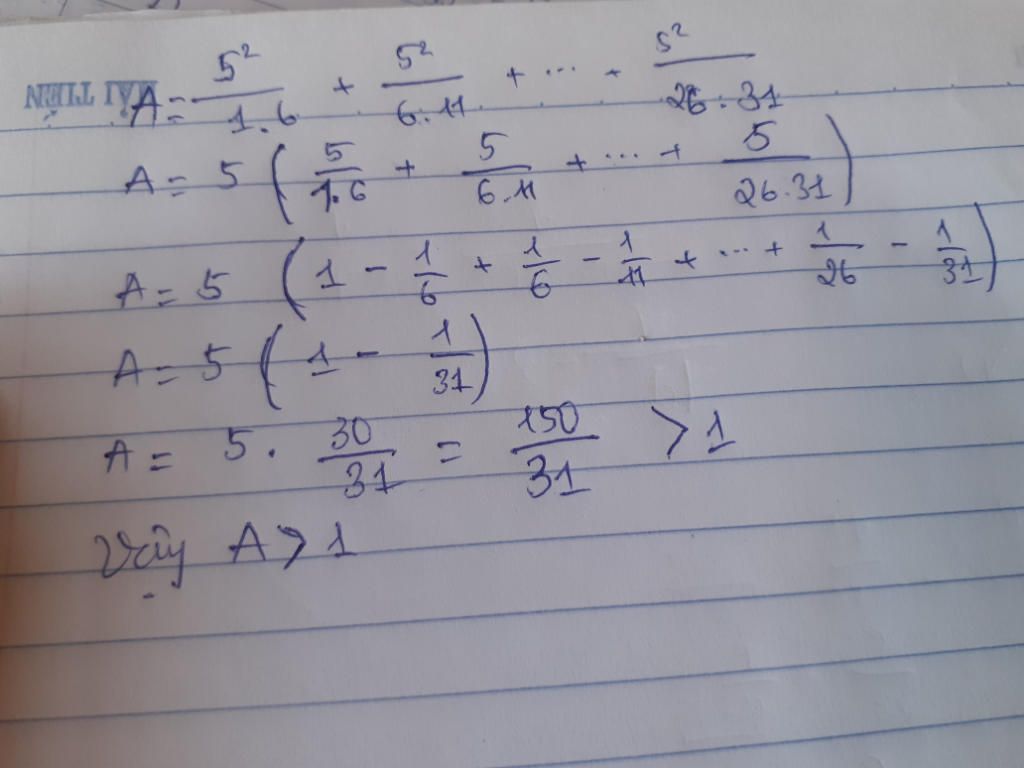 HẢI TIẾN
A = 5²/1.6 + 5²/6.11 + ... + 5²/26.31
A = 5 (5/1.6 + 5/6.11 + ... + 5/26.31)
A = 5 (1 - 1/6 + 1/6 - 1/11 + ... + 1/26 - 1/31)
A = 5 (1 - 1/31)
A = 5 . 30/31 = 150/31 > 1
Vậy A > 1